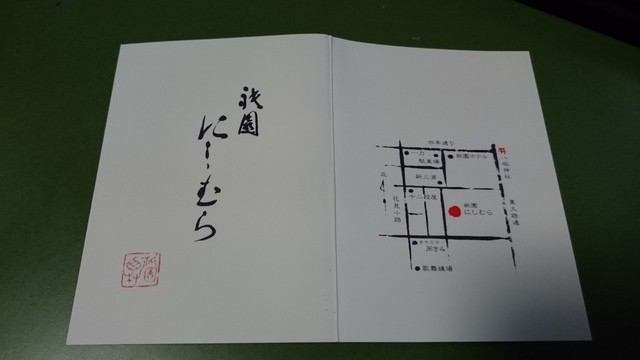 祇園
にしむら
四条通り
一力
駐車場
祇園ホテル
八坂神社
新三浦
北
花見小路
十二段屋
祇園
にしむら
東大路通
歌舞練場